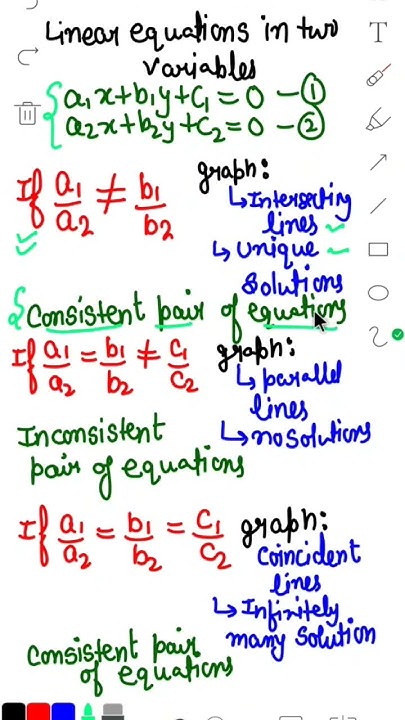 Linear equations in two
variables
a₁x+b₁y+c₁=0 -①
a₂x+b₂y+c₂=0 -②
If a₁/a₂ ≠ b₁/b₂
graph:
↳Intersecting
lines
↳ unique
solutions
Consistent pair of equations
If a₁/a₂ = b₁/b₂ ≠ c₁/c₂
graph:
↳ parallel
lines
↳nosolutions
Inconsistent
pair of equations
If a₁/a₂ = b₁/b₂ = c₁/c₂
graph:
Coincident
lines
↳Infinitely
many solution
Consistent pair
of equations
T